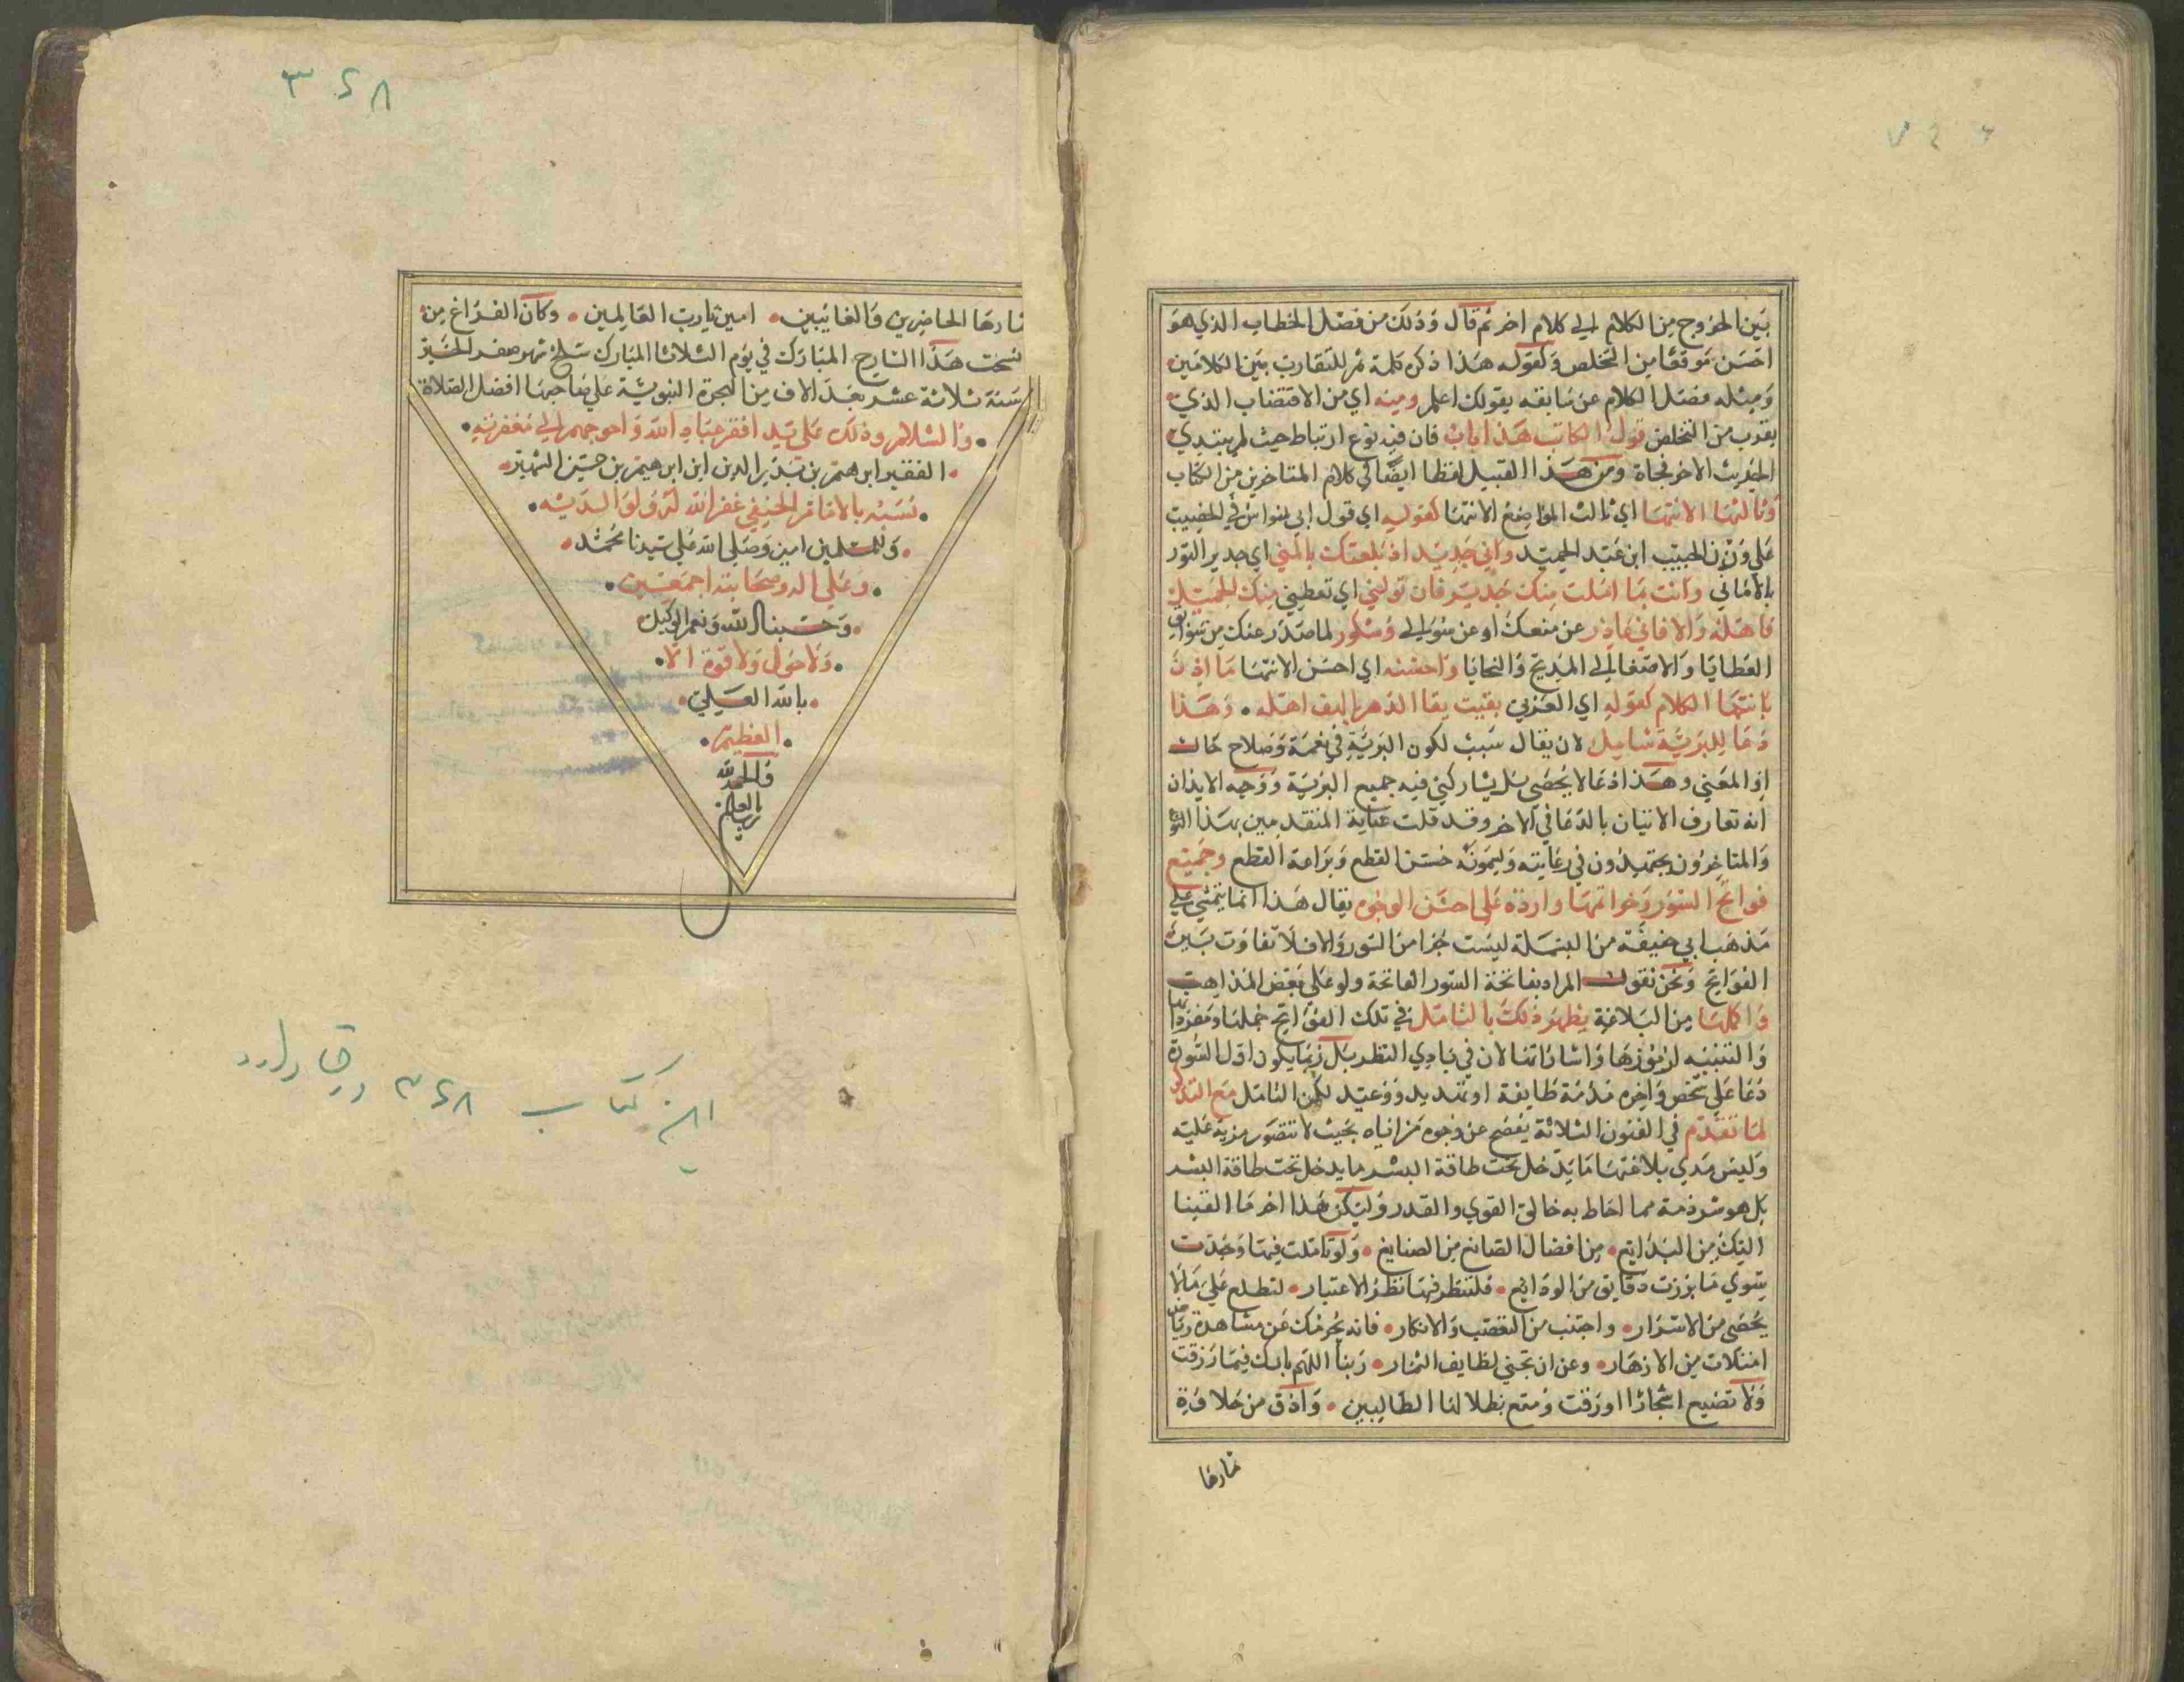 بين الخروج من الكلام الي كلام اخر ثم قال وذلك من فصل الخطاب الذي هو
احسن موقعا من التخلص وكقوله هذا ذكر كلمة ثم للتقارب بين الكلامين
ومثله فصل الكلام عن سابقه بقولك اعلم ومنه اي من الاقتضاب الذي
يقرب من التخلص قول الكاتب هذا باب فان فيه نوع ارتباط حيث لم يبتدي
الحديث الاخر فجاة ومن هذا القبيل لفظا ايضا في كلام المتاخرين من الكتاب
وثالثها الانتها اي ثالث المواضع الانتها كقوله اي قول ابي نواس في الخصيب
علي وزن الحبيب ابن عبد الحميد واني جدير اذ بلغتك بالمني اي جدير الفوز
بالاماني وانت بما املت منك جدير فان تولني اي تعطيني منك الجميل
فاهله والا فاني عاذر عن منعك او عن سوالي وشكور لما صدر عنك من سوابق
العطايا والاصغا الي المديح والتحايا واحسنه اي احسن الانتها ما اذن
بانتها الكلام كقوله اي المعري بقيت بقا الدهر يا كهف اهله • وهذا
دعا للبرية شامل لان بقاك سبب لكون البرية في نعمة وصلاح حال
اذ المعني وهذا دعا لا يخصني بل يشاركني فيه جميع البرية ووجه الايذان
انه تعارف الاتيان بالدعا في الاخر وقد قلت عناية المتقدمين بهذا النوع
والمتاخرون يجتهدون في رعايته ويسمونه حسن القطع وبراعة القطع وجميع
فواتح السور وخواتمها واردة علي احسن الوجوه يقال هذا انما يتمشي علي
مذهب ابي حنيفة من البسملة ليست جزا من السور والا فلا تفاوت بين
الفواتح ونحن نقول المراد بفاتحة السور الفاتحة ولو علي بعض المذاهب
واكملها من البلاغة يظهر ذلك بالتامل في تلك الفواتح جملها ومفرداتها
والتنبيه لرموزها واشاراتها لان في بادي النظر بل ربما يكون اول السورة
دعا علي شخص واخره مذمة طايفة او تهديد ووعيد لكن التامل مع التذكر
لما تقدم في الفنون الثلاثة يفصح عن وجوه مزاياه بحيث لا تتصور مزية عليه
وليس مدي بلاغتها ما يدخل تحت طاقة البشر ما يدخل تحت طاقة البشر
بل هو شرذمة مما احاط به خالق القوي والقدر وليكن هذا اخر ما القينا
اليك من البدايع • من افضال الصانع من الصنايع • ولو تاملت فيها وجدت
سوي ما برزت دقايق من الودايع • فلتنظر فيها نظر الاعتبار • لتطلع علي ما لا
يحصي من الاسرار • واجتنب من التعصب والانكار • فانه يحرمك عن مشاهدة رياض
امتلات من الازهار • وعن ان تجني لطايف الثمار • ربنا اللهم بارك فيما رزقت
ولا تضيع اشجارا اورقت ومتع بظلالها الطالبين • واذق من حلاوة
ثمارها
٣٤٨
ثمارها الحاضرين والغايبين • امين يارب العالمين • وكان الفراغ من
نسخت هذا الشارح المبارك في يوم الثلاثا المبارك سلخ شهر صفر الخير
سنة ثلاثة عشر بعد الالاف من الهجرة النبوية علي صاحبها افضل الصلاة
• والسلام وذلك علي يد افقر عباد الله واحوجهم الي مغفرته •
• الفقير ابرهيم بن بدير الدين ابن ابرهيم بن حسين الشهير •
• نسبه بالامام الحنيفي غفر الله له ولوالديه •
• وللمسلمين امين وصلي الله علي سيدنا محمد •
• وعلي اله وصحابته اجمعين •
• وحسبنا الله ونعم الوكيل •
• ولا حول ولا قوة الا •
• بالله العلي •
• العظيم •
والحمد لله
رب العالمين
اين كتاب ٣٤٨ ورق دارد